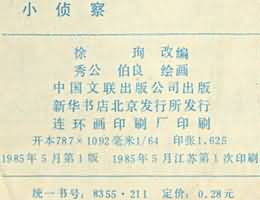 小侦察
徐 珣 改编
秀公 伯良 绘画
中国文联出版公司出版
新华书店北京发行所发行
连环画印刷厂印刷
开本787×1092毫米1/64 印张1.625
1985年5月第1版 1985年5月江苏第1次印刷
统一书号:8355·211 定价:0.28元